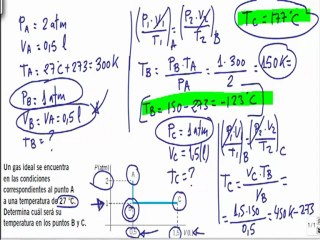 P_A = 2 atm
V_A = 0,5 l
T_A = 27°C + 273 = 300K
P_B = 1 atm
V_B = V_A = 0,5 l
T_B = ?
(P_1·V_1/T_1)_A = (P_2·V_2/T_2)_B
T_B = P_B·T_A/P_A = 1·300/2 = 150K =
T_B = 150 - 273 = -123°C
T_C = 177°C
P_C = 1 atm
V_C = 1,5 l
T_C = ?
(P_1·V_1/T_1)_B = (P_2·V_2/T_2)_C
T_C = V_C·T_B/V_B =
= 1,5·150/0,5 = 450K - 273
Un gas ideal se encuentra
en las condiciones
correspondientes al punto A
a una temperatura de 27 °C.
Determina cuál será su
temperatura en los puntos B y C.
P(atm)
2
A
1
B
C
0,5
1,5